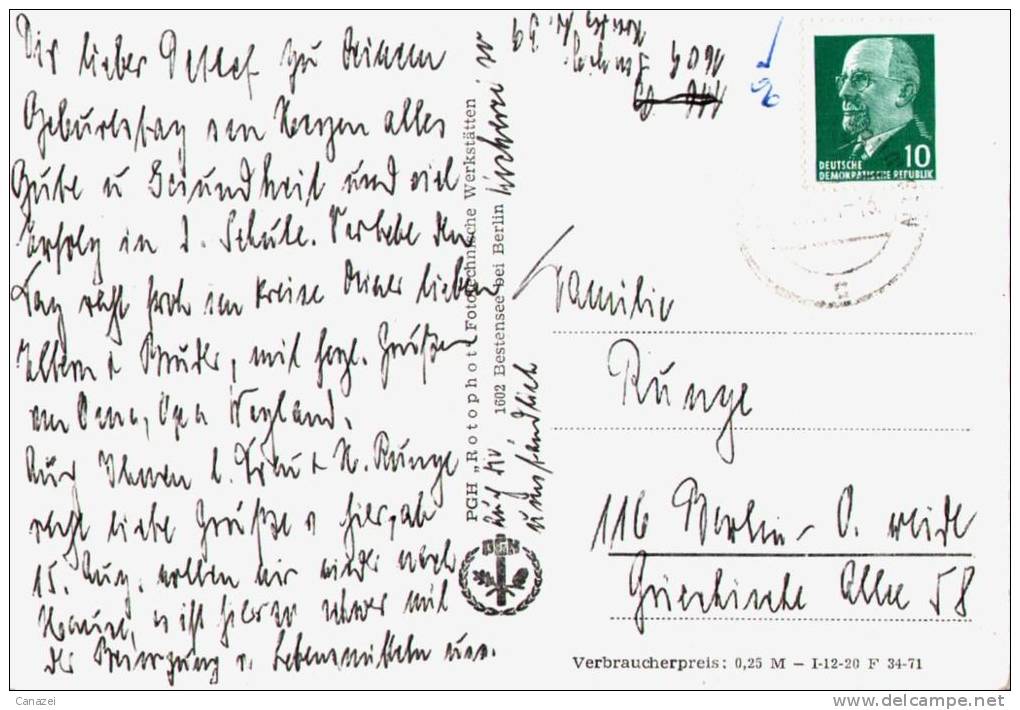 Dir lieber Detlef zu Deinem
Geburtstag von Herzen alles
Gute u Gesundheit und viel
Erfolg in d. Schule. Verlebe den
Tag recht froh im Kreise Deiner lieben
Eltern + Bruder, mit herzl. Grüßen
von Oma, Opa
Auch Ihnen l. Frau + H. Runge
recht liebe Grüße v hier, ab
15. Aug. wollen wir wieder nach
Hause, es ist hier so schwer mit
der Versorgung v. Lebensmitteln usw.
auch die
umständlich
PGH „Rotophot“ Fototechnische Werkstätten
1602 Bestensee bei Berlin
DEUTSCHE
DEMOKRATISCHE REPUBLIK
10
1604
59
Familie
Runge
116 Berlin - O. weide
Griechische Allee 58
Verbraucherpreis: 0,25 M — I-12-20 F 34-71
Canazei
delcampe.net